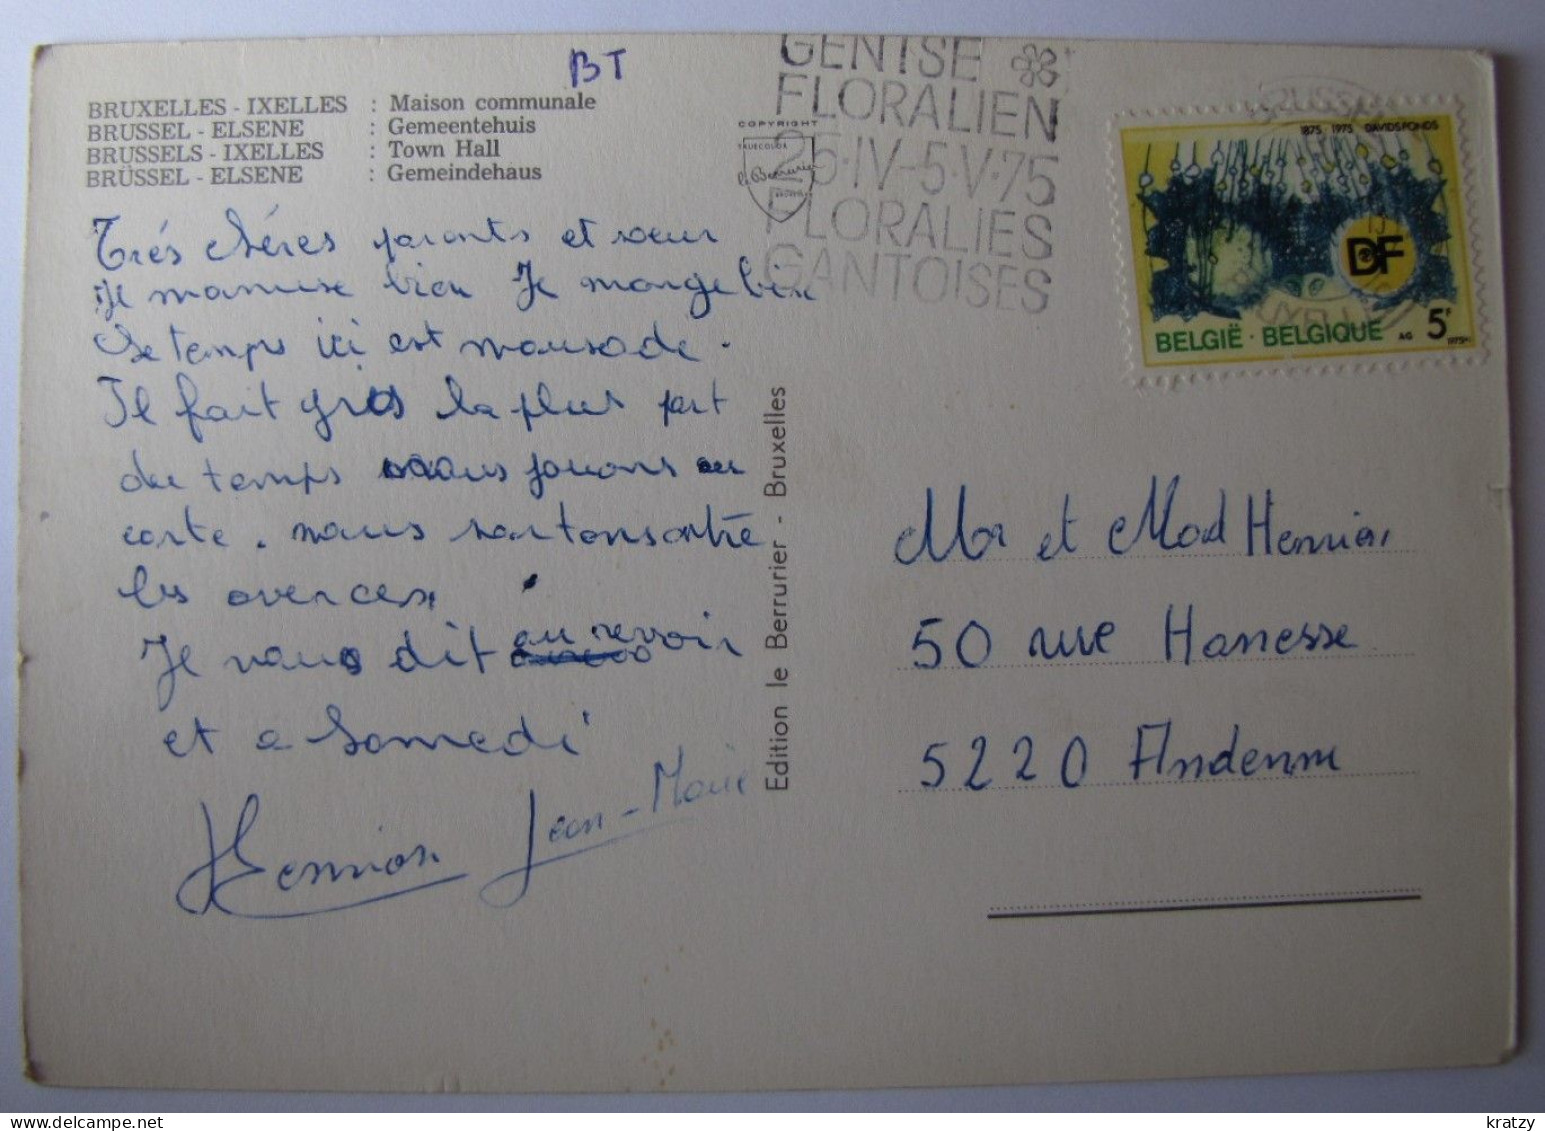 BT
BRUXELLES - IXELLES : Maison communale
BRUSSEL - ELSENE : Gemeentehuis
BRUSSELS - IXELLES : Town Hall
BRÜSSEL - ELSENE : Gemeindehaus
Trés chéres parents et sœur
Je m'amuse bien Je mange bien
Le temps ici est mausade.
Il fait gris la plus part
du temps nous jouons au
carte. nous sortons entre
les averces.
Je vous dit au revoir
et a Samedi
Hennion Jean-Marie
Edition le Berrurier - Bruxelles
COPYRIGHT
GENTSE
FLORALIEN
25·IV-5·V·75
FLORALIES
GANTOISES
1875 1975 DAVIDSFONDS
DF
BELGIË · BELGIQUE AG 5F 1975
Mr et Mad Hennion
50 rue Hanesse
5220 Andenne
kratzy
delcampe.net